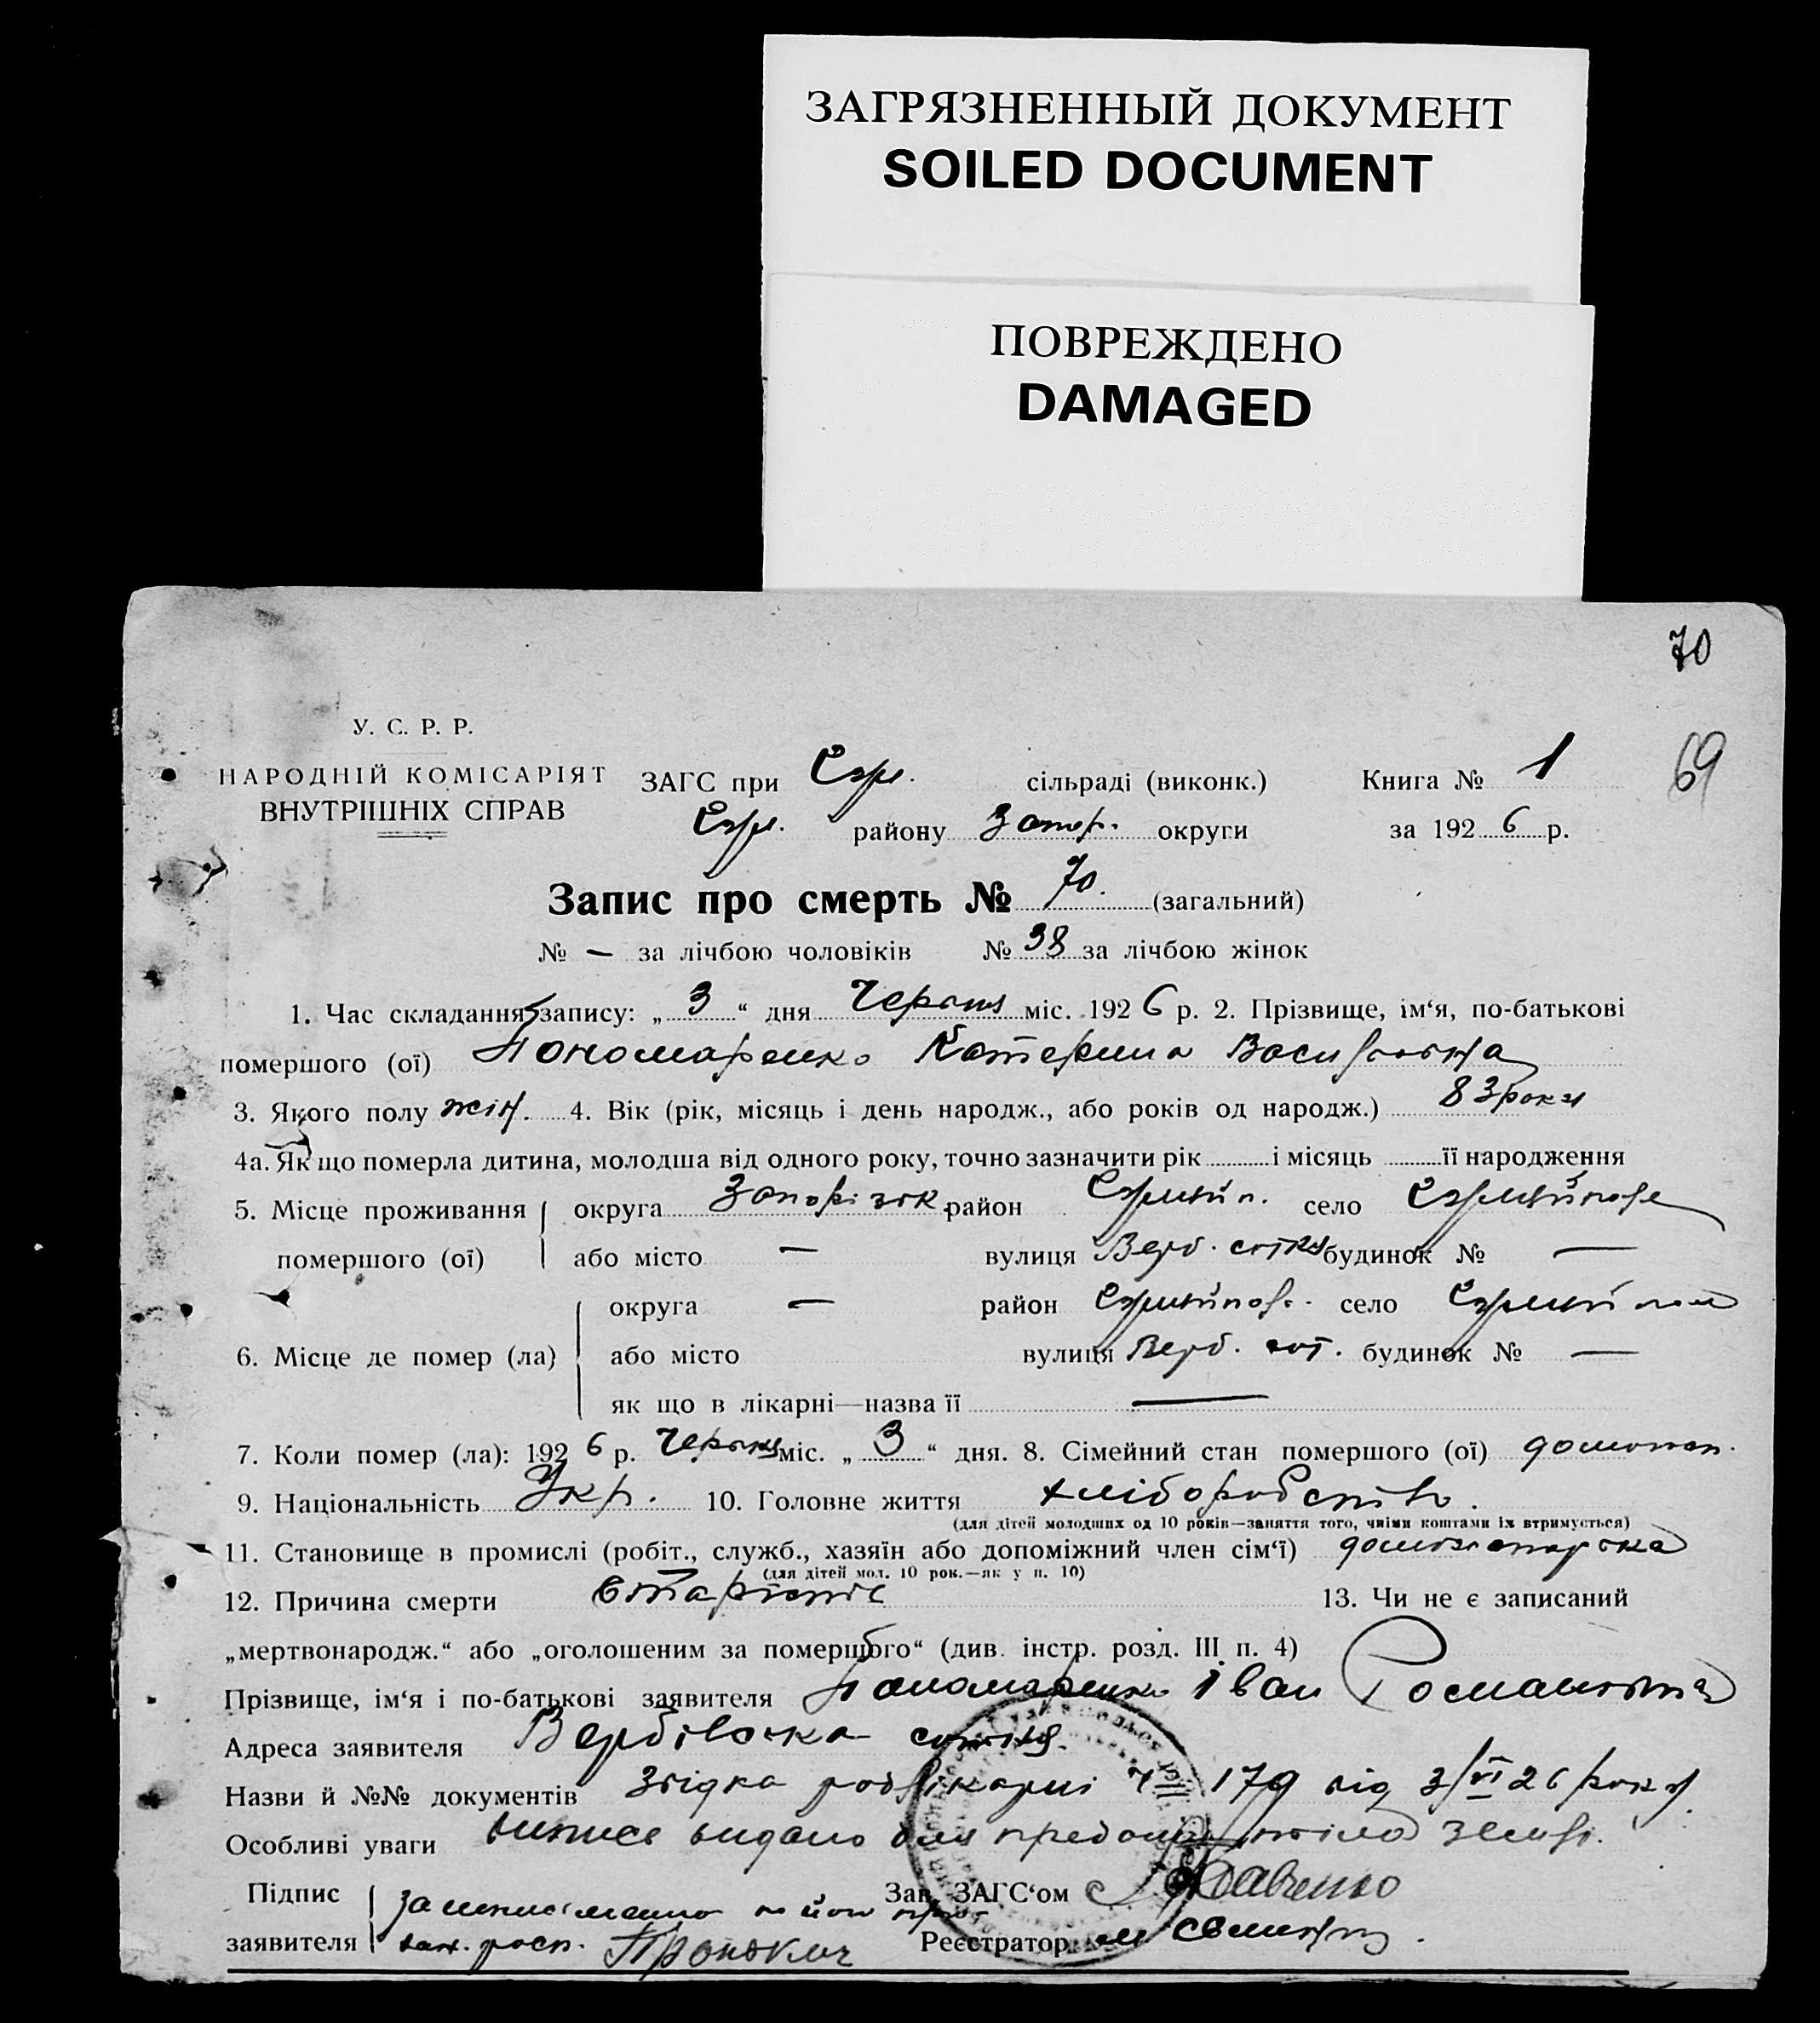 ЗАГРЯЗНЕННЫЙ ДОКУМЕНТ
SOILED DOCUMENT
ПОВРЕЖДЕНО
DAMAGED
70
69
У. С. Р. Р.
НАРОДНІЙ КОМІСАРІЯТ
ВНУТРІШНІХ СПРАВ
ЗАГС при сільраді (виконк.) Книга № 1
району Запор. округи за 1926 р.
Запис про смерть № 70. (загальний)
№ — за лічбою чоловіків № 38 за лічбою жінок
1. Час складання запису: „ 3 “ дня Червня міс. 1926 р. 2. Прізвище, ім‘я, по-батькові
помершого (ої) Пономаренко Катерина Васильовна
3. Якого полу жін. 4. Вік (рік, місяць і день народж., або років од народж.) 83 роки
4а. Як що померла дитина, молодша від одного року, точно зазначити рік і місяць її народження
5. Місце проживання округа Запорізьк. район село
помершого (ої) або місто — вулиця Верб. сотня будинок № —
округа — район село
6. Місце де помер (ла) або місто вулиця Верб. сот. будинок № —
як що в лікарні—назва її —
7. Коли помер (ла): 1926 р. Червня міс. „ 3 “ дня. 8. Сімейний стан помершого (ої)
9. Національність Укр. 10. Головне життя хліборобство.
(для дітей молодших од 10 років—заняття того, чиїми коштами їх втримується)
11. Становище в промислі (робіт., служб., хазяїн або допоміжний член сім‘ї)
(для дітей мол. 10 рок.—як у п. 10)
12. Причина смерти Старість 13. Чи не є записаний
„мертвонародж.“ або „оголошеним за помершого“ (див. інстр. розд. III п. 4)
Прізвище, ім‘я і по-батькові заявителя Пономаренко Іван Романович
Адреса заявителя Вербівська сотня.
Назви й №№ документів Звідка рай лікарні ч 179 від 3/VI 26 року.
Особливі уваги Випись видано для тіла землі.
Підпис за Зав. ЗАГС‘ом
заявителя росп. Реєстратор